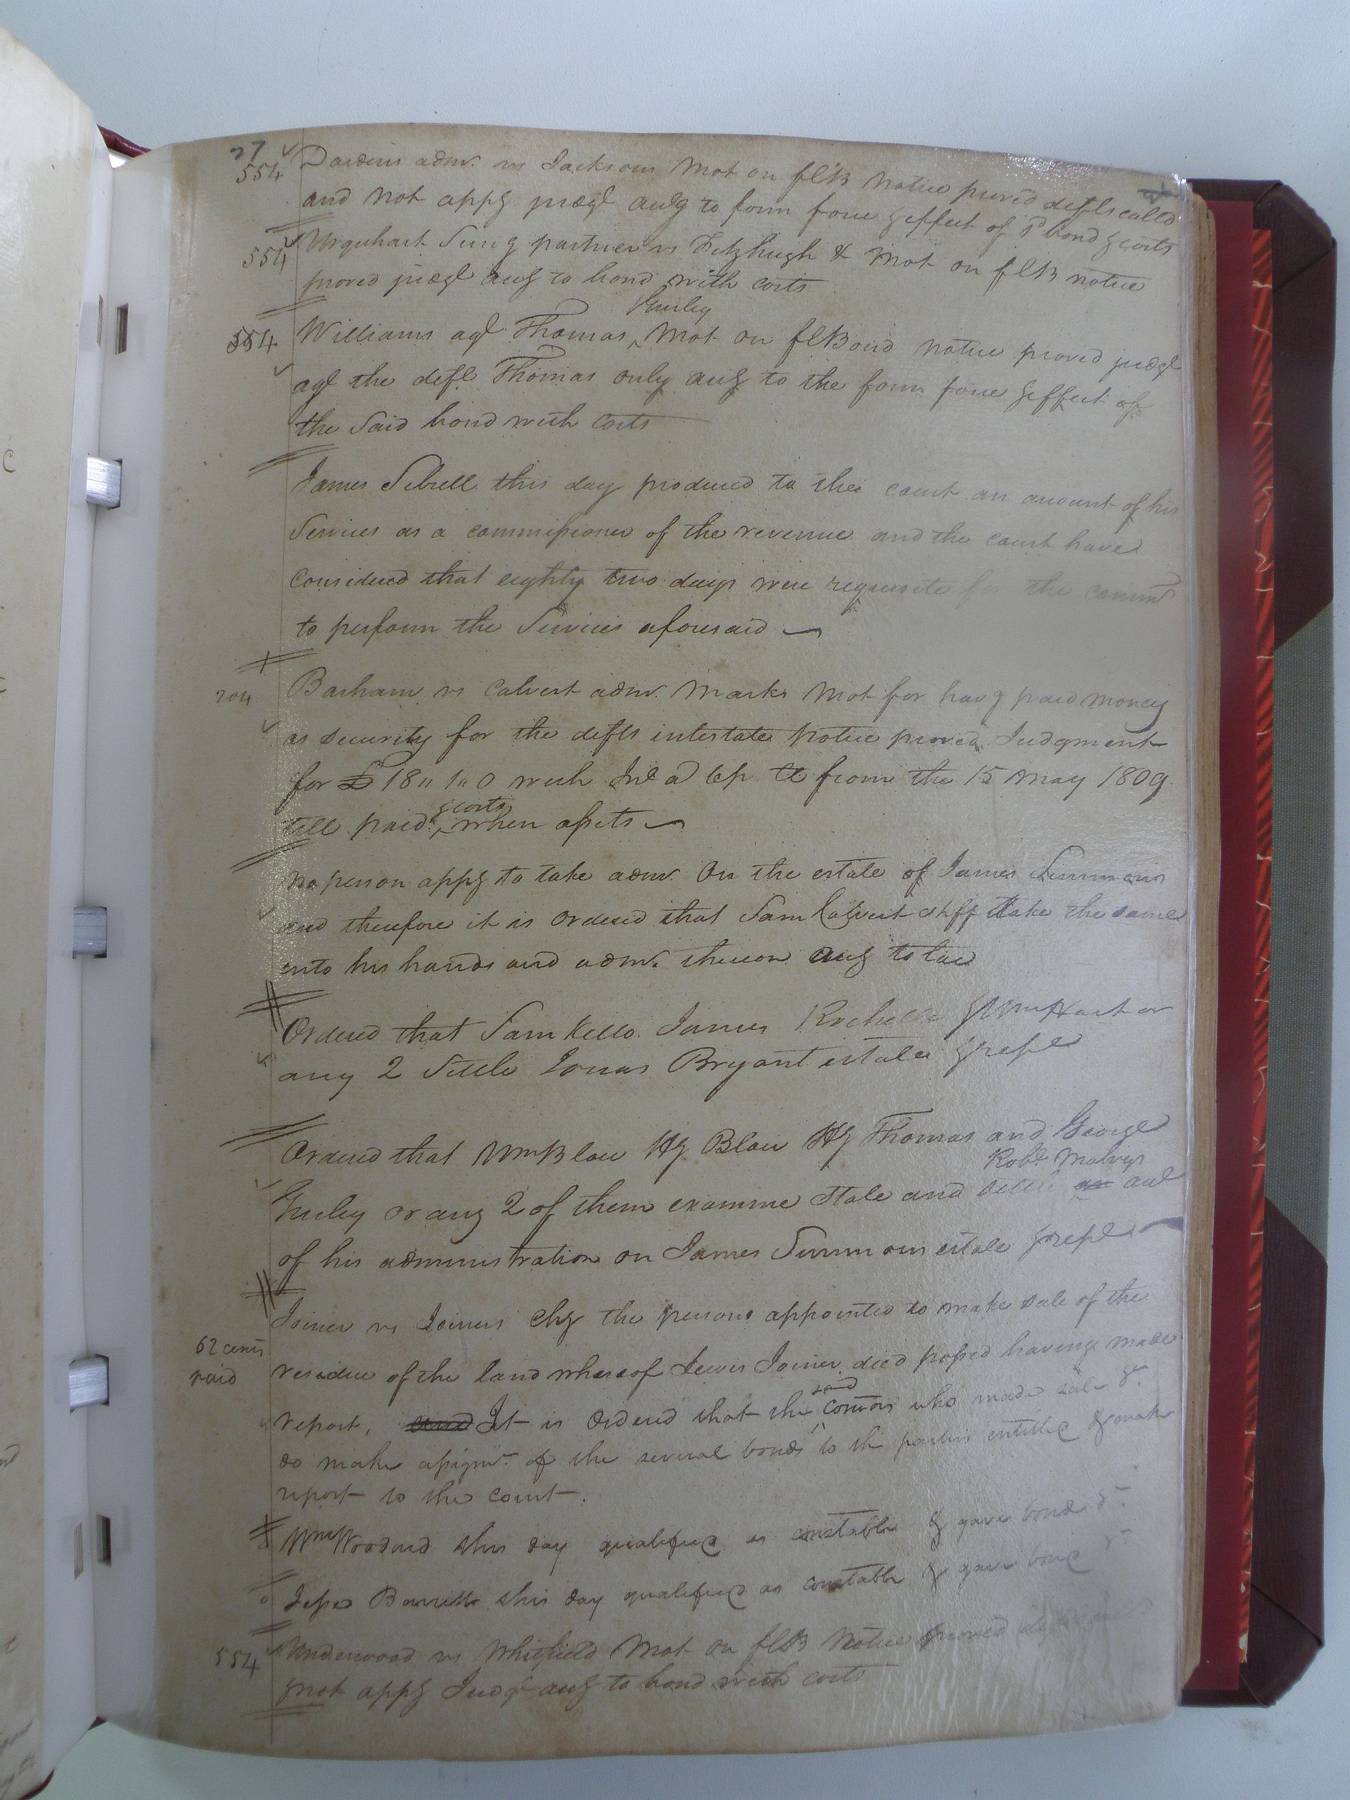 27
554 Dardens adm. vs Jacksons Mot on flB notice proved defts called
and not appg judgt accg to form force & effect of sd bond & costs
554 Urquhart Surg partner vs Fitzhugh & Mot on flB notice
proved judgt accg to bond with costs
Gurley
554 Williams agt Thomas, Mot on flBond notice proved judgt
agt the deft Thomas only accg to the form force & effect of
the said bond with costs
James Sebrell this day produced to the court an account of his
Services as a commissioner of the revenue and the court have
considered that eighty two days were requisite for the commr
to perform the Services aforesaid
704 Barham vs Calvert adm. Marks Mot for havg paid money
as security for the defts intestate notice proved Judgment
for £ 18 " 1 " 0 with Int a 6 p Ct from the 15 May 1809
& costs
till paid, when assets
no person appg to take adm. on the estate of James Simmons
and therefore it is ordered that Sam Calvert shff take the same
into his hands and adm. thereon accg to law
Ordered that Sam Kello James Rochelle & Wm Hart or
any 2 Settle Jonas Bryant estate & rept
Ordered that Wm Blow Hy Blow Hy Thomas and George
Robt Mabrys
Gurley or any 2 of them examine State and settle an act
of his administration on James Simmons estate & rept
Joiner vs Joiners Chy the persons appointed to make sale of the
62 cents
paid
residue of the land whereof Lewis Joiner died possd having made
said
report, and It is ordered that the comors who made sale &c
do make assignt of the several bonds to the parties entitled & make
report to the court.
Wm Woodard this day qualified as constable & gave bond &c
Jesse Barrett this day qualified as constable & gave bond &c
554 Underwood vs Whitfield Mot on flB Notice proved
& not appg Judgt accg to bond with costs